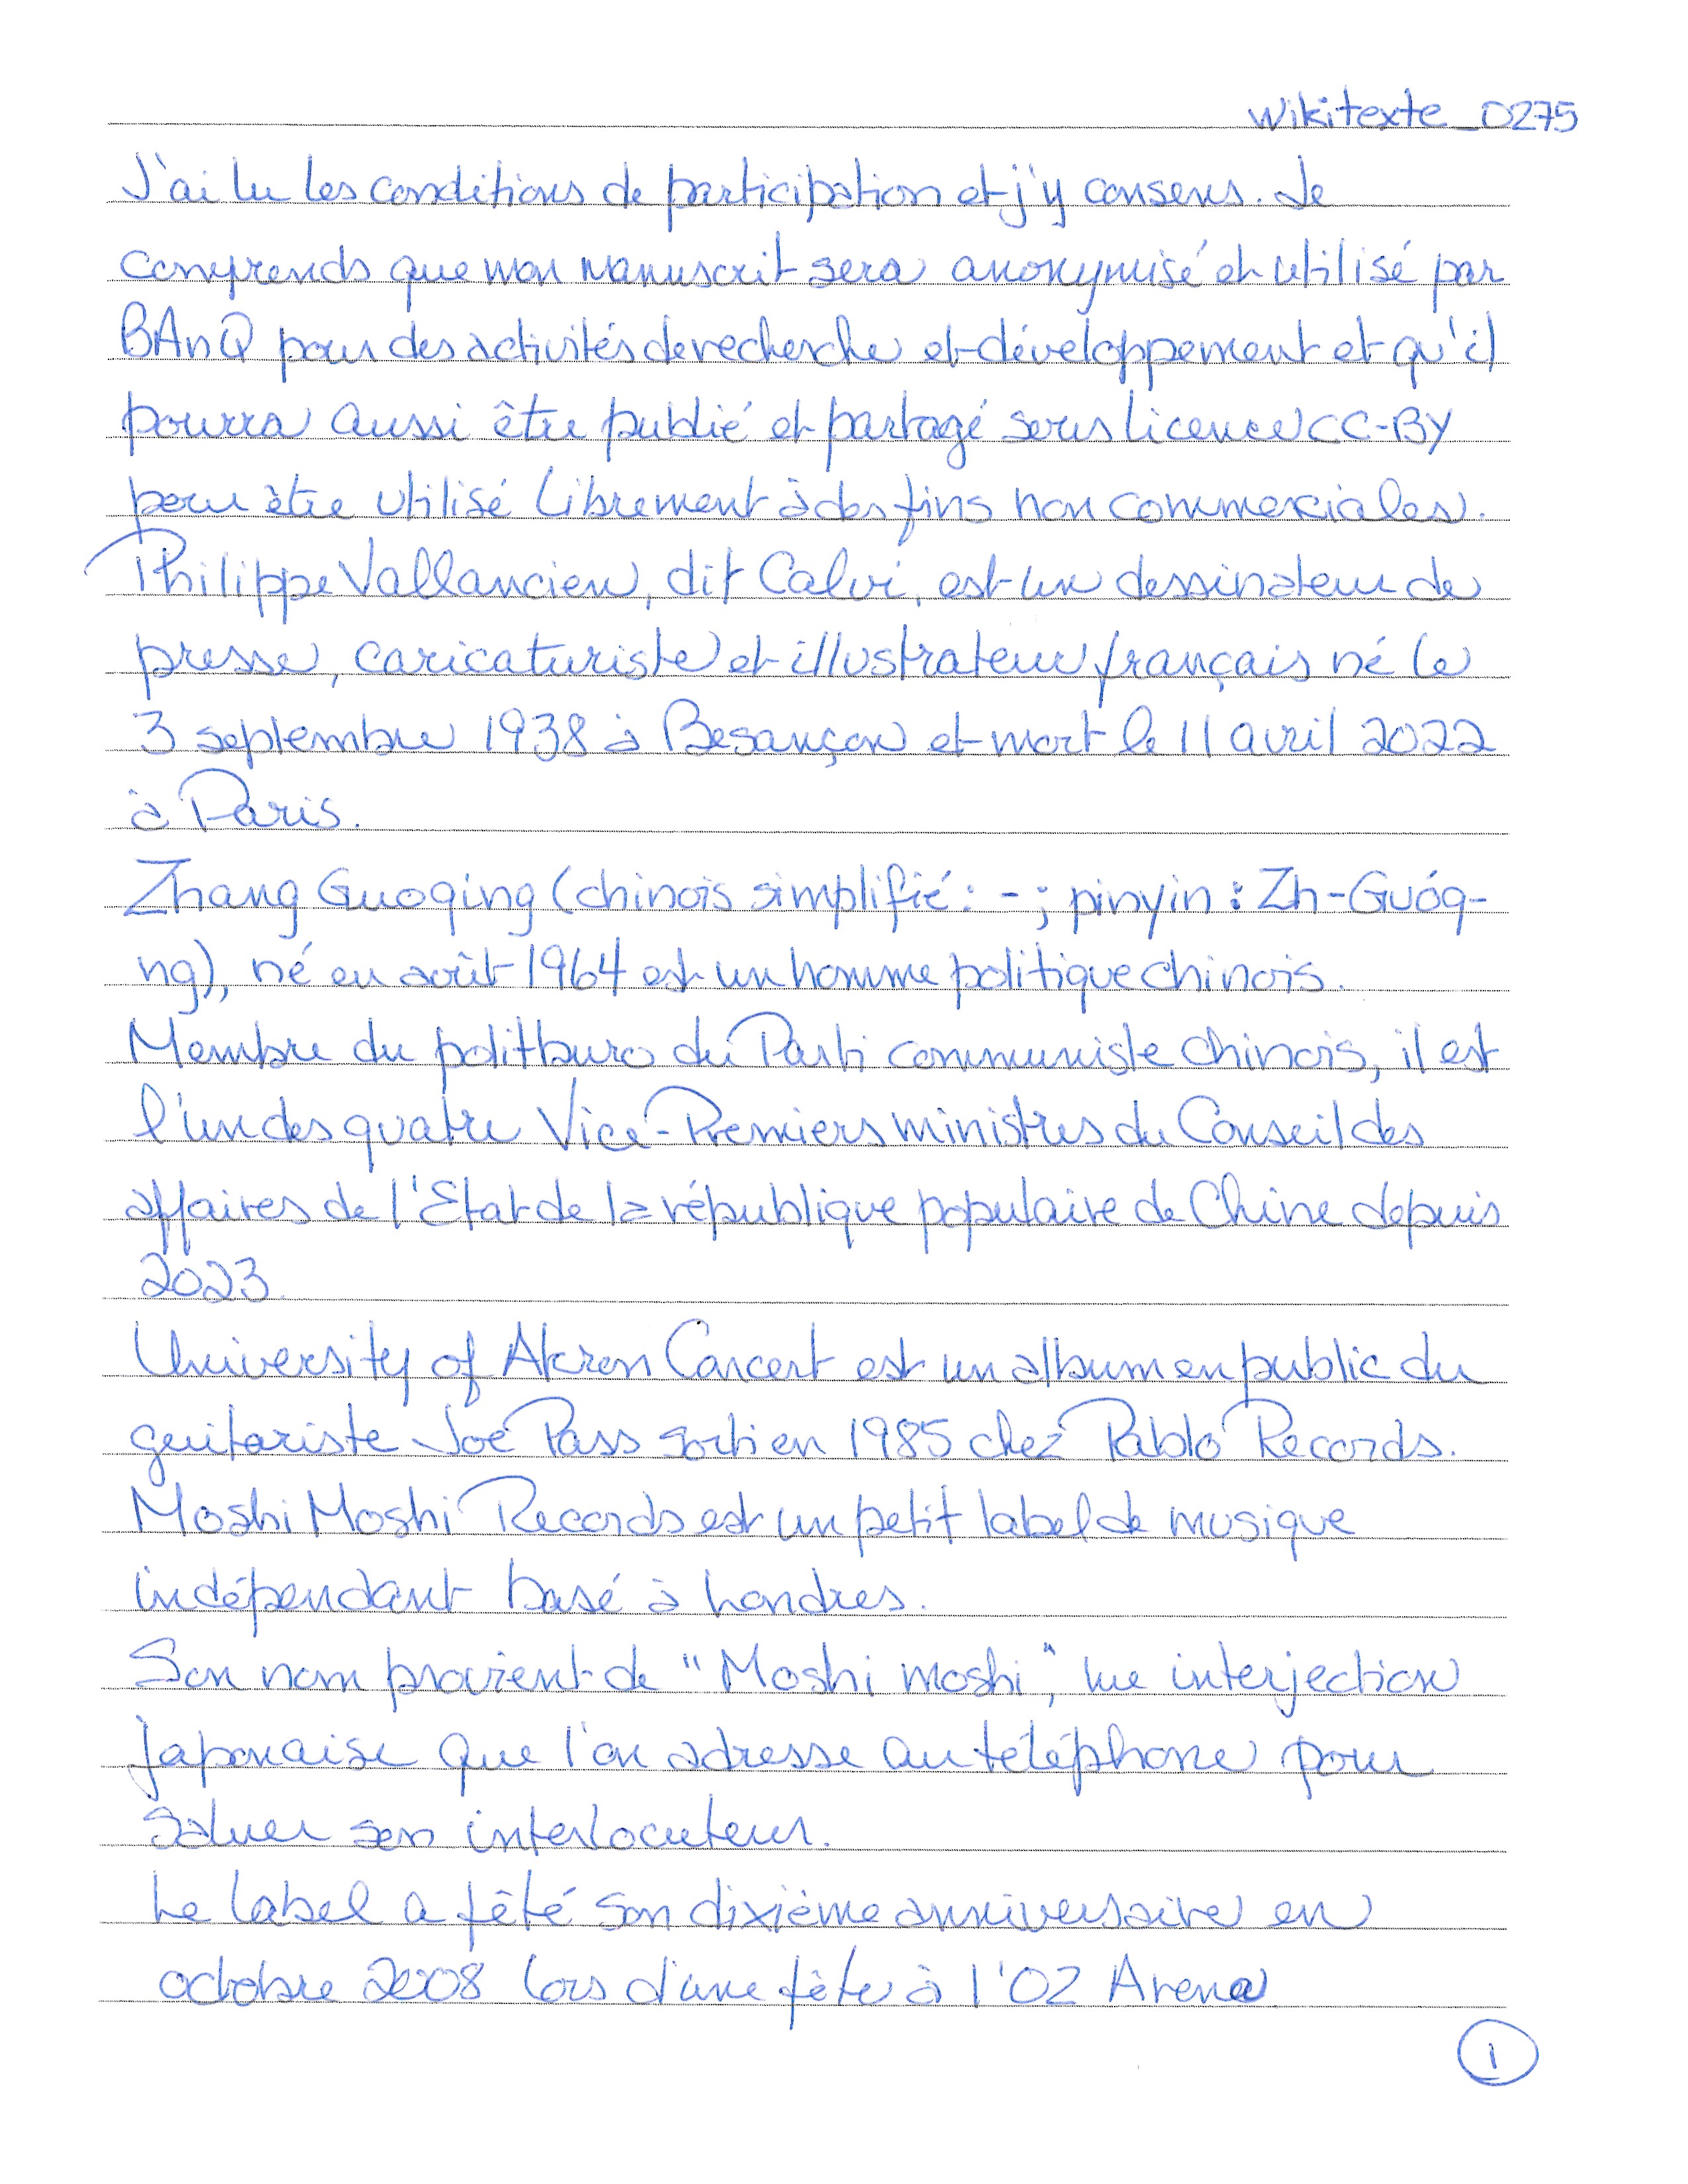 Wikitexte_0275
J'ai lu les conditions de participation et j'y consens. Je
comprends que mon manuscrit sera anonymisé et utilisé par
BAnQ pour des activités de recherche et développement et qu'il
pourra aussi être publié et partagé sous licence CC-BY
pour être utilisé librement à des fins non commerciales.
Philippe Vallancien, dit Calvi, est un dessinateur de
presse, caricaturiste et illustrateur français né le
3 septembre 1938 à Besançon et mort le 11 avril 2022
à Paris.
Zhang Guoqing (chinois simplifié : - ; pinyin : Zh-Guóq-
ng), né en août 1964 est un homme politique chinois.
Membre du politburo du Parti communiste chinois, il est
l'un des quatre Vice-Premiers ministres du Conseil des
affaires de l'Etat de la république populaire de Chine depuis
2023.
University of Akron Concert est un album en public du
guitariste Joe Pass sorti en 1985 chez Pablo Records.
Moshi Moshi Records est un petit label de musique
indépendant basé à Londres.
Son nom provient de "Moshi moshi", une interjection
japonaise que l'on adresse au téléphone pour
saluer son interlocuteur.
Le label a fêté son dixième anniversaire en
octobre 2008 lors d'une fête à l'O2 Arena
1